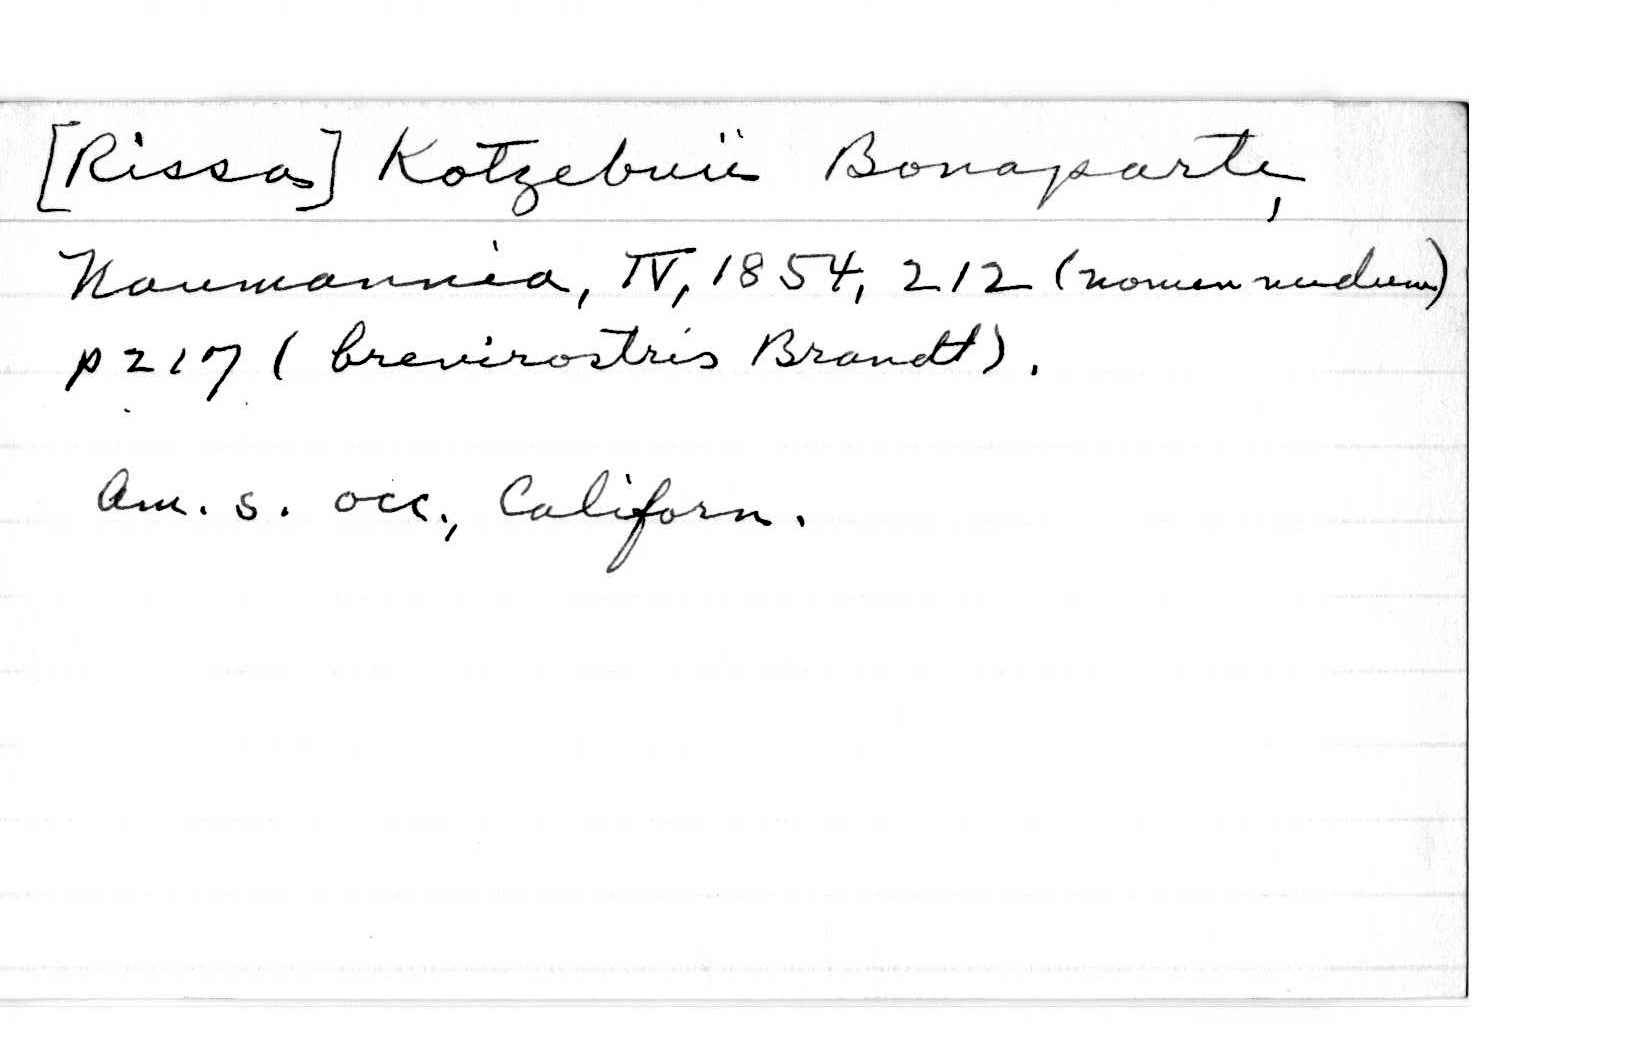 [Rissa] Kotzebuii Bonaparte,
Naumannia, IV, 1854, 212 (nomen nudum)
p 217 ( brevirostris Brandt).
Am. s. occ., Californ.